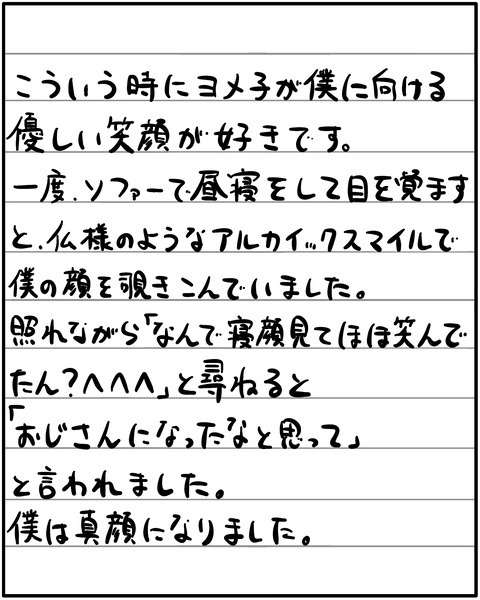 こういう時にヨメ子が僕に向ける
優しい笑顔が好きです。
一度、ソファーで昼寝をして目を覚ます
と、仏様のようなアルカイックスマイルで
僕の顔を覗きこんでいました。
照れながら「なんで寝顔見てほほ笑んで
たん?へへへ」と尋ねると
「おじさんになったなと思って」
と言われました。
僕は真顔になりました。